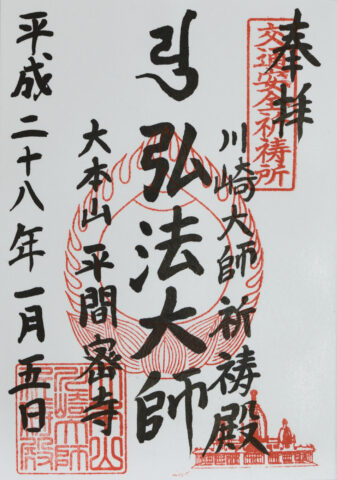 奉拝
交通安全祈祷所
川崎大師祈祷殿
弘法大師
大本山 平間寺
平成二十八年一月五日